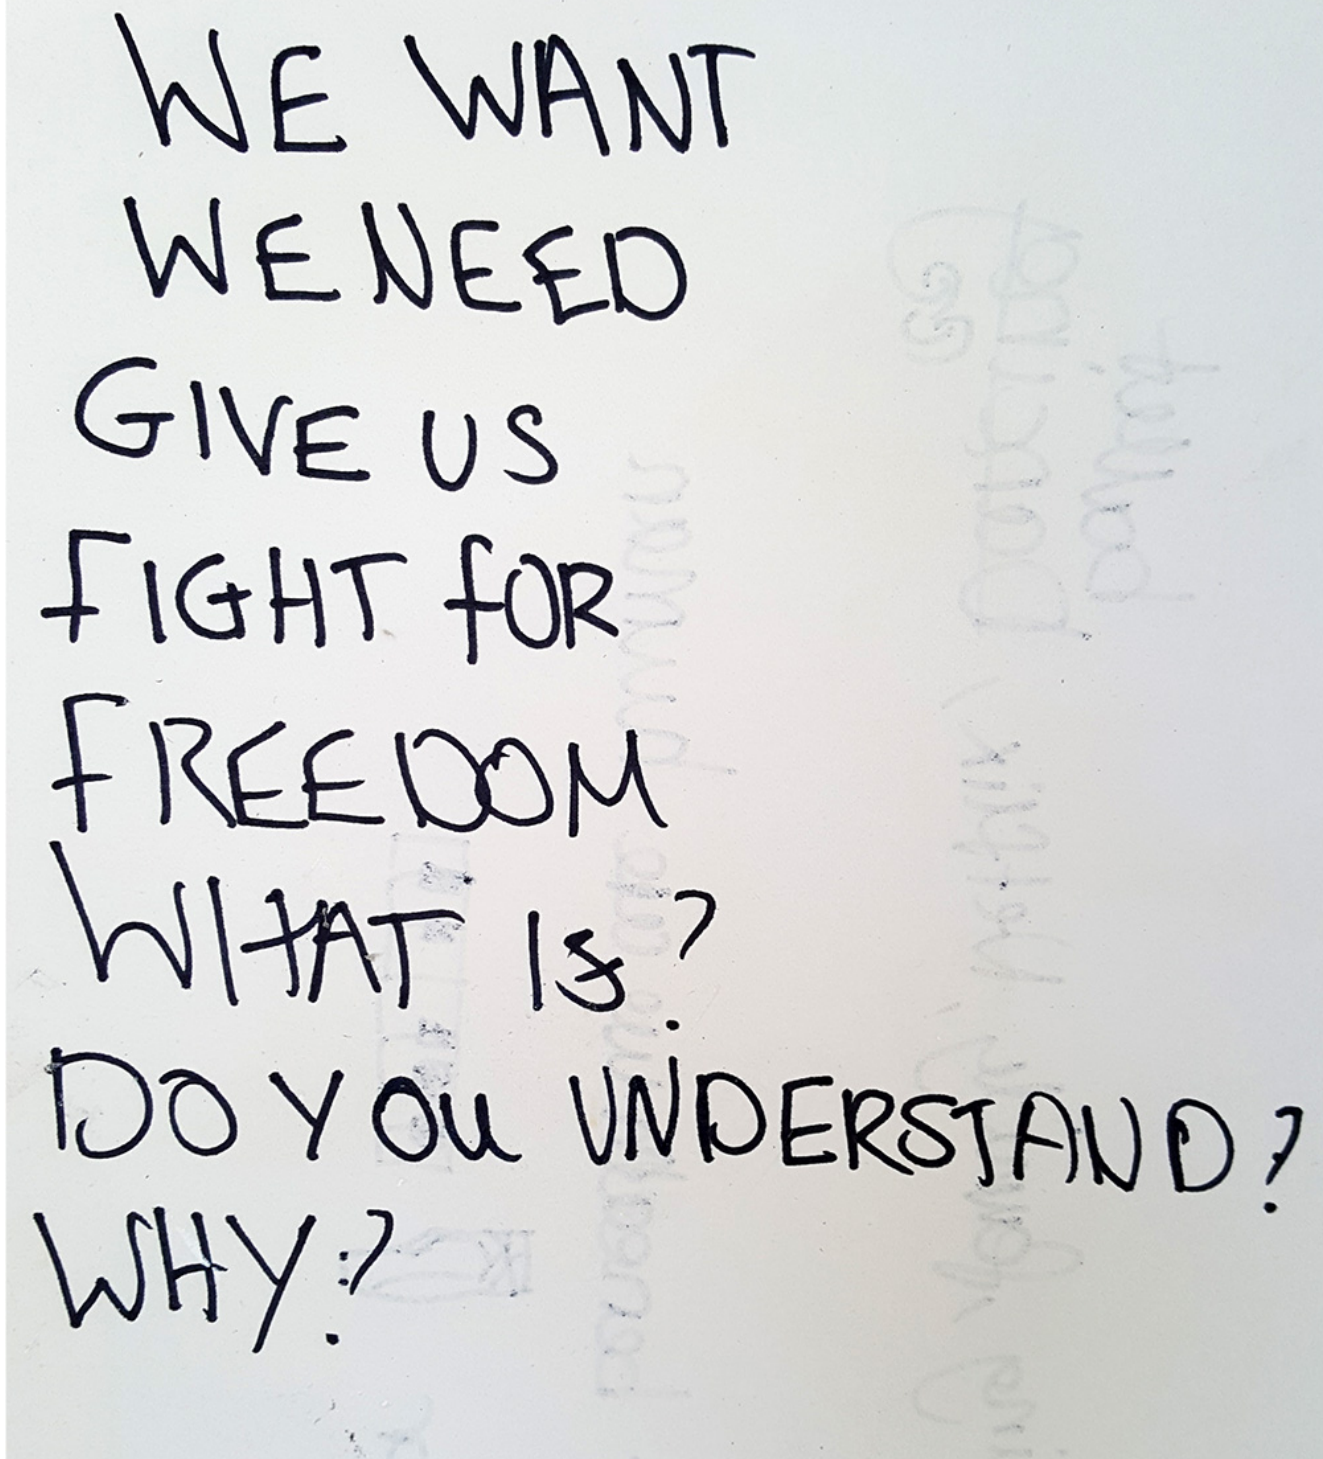 WE WANT
WE NEED
GIVE US
FIGHT FOR
FREEDOM
WHAT IS?
DO YOU UNDERSTAND?
WHY?